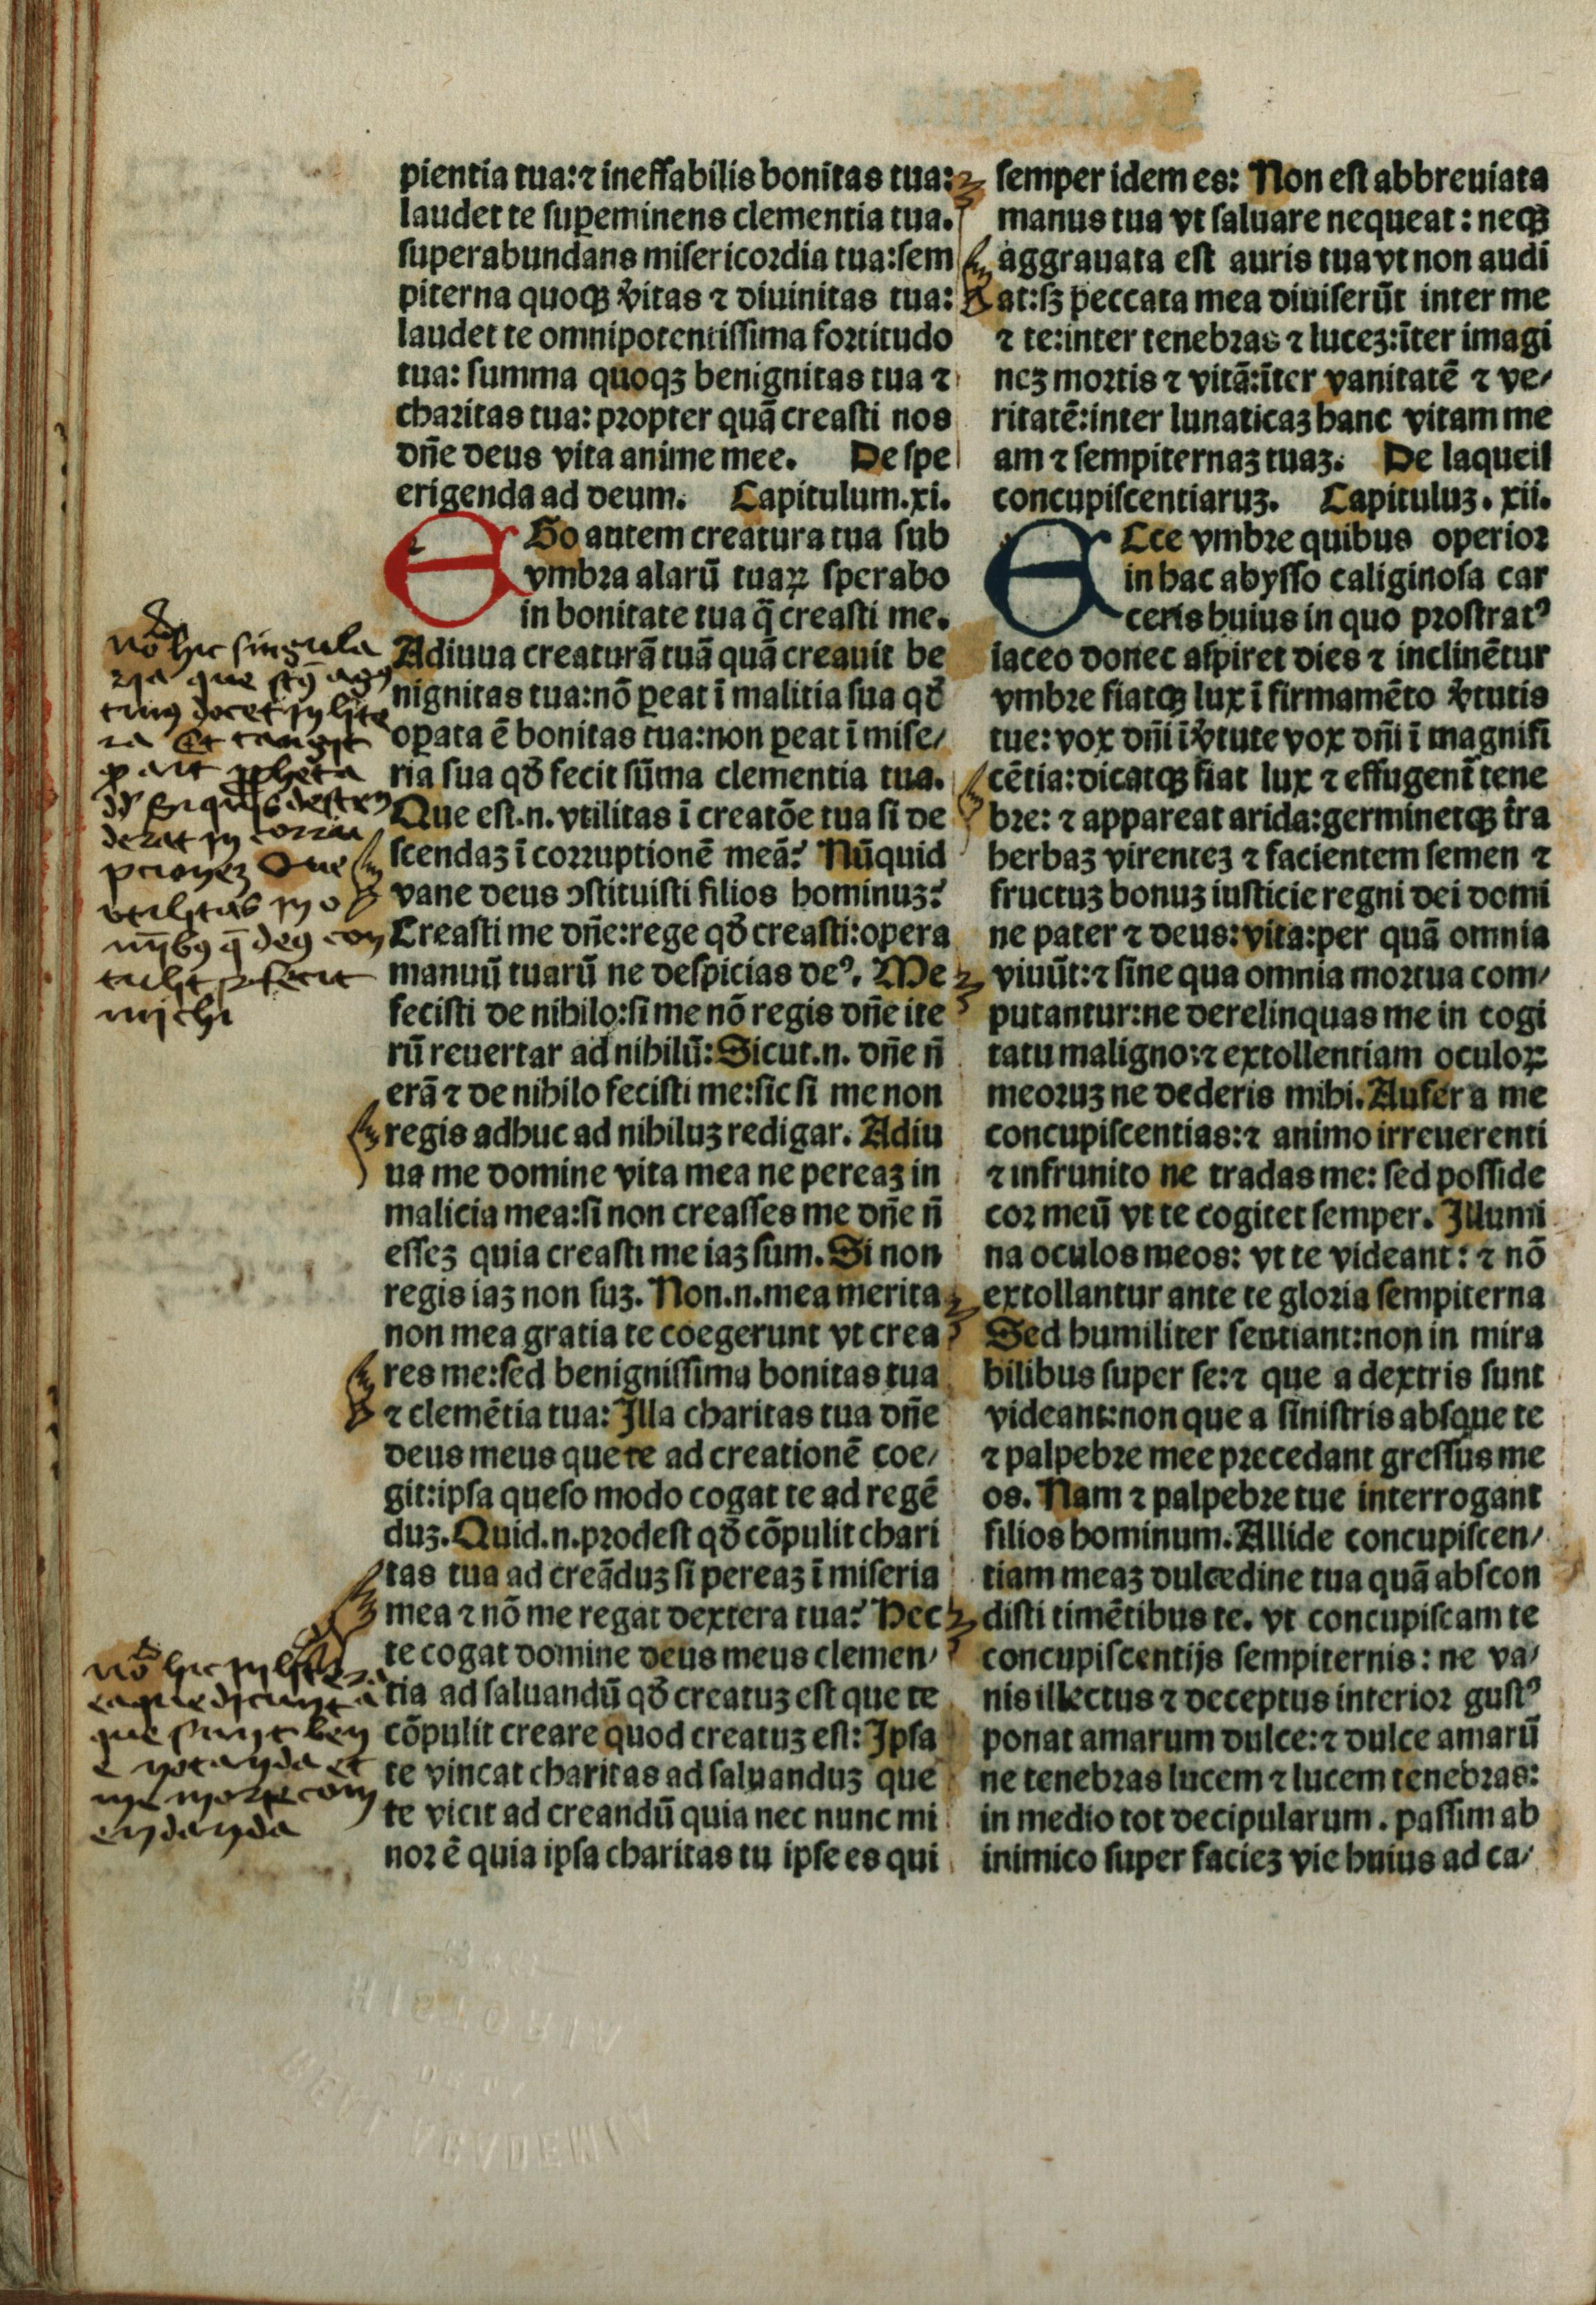 pientia tua:⁊ ineffabilis bonitas tua:
laudet te suꝑeminens clementia tua.
superabundans misericordia tua:sem
piterna quoqꝫ v̾itas ⁊ diuinitas tua:
laudet te omnipotentissima fortitudo
tua: summa quoqꝫ benignitas tua ⁊
charitas tua: propter quā creasti nos
dn̄e deus vita anime mee. De spe
erigenda ad deum. Capitulum.xi.
EGo autem creatura tua sub
vmbra alarū tuaꝝ sperabo
in bonitate tua q̄ creasti me.
Adiuua creaturā tuā quā creauit be
nignitas tua:nō ꝑeat ī malitia sua qd̾
oꝑata ē bonitas tua:non ꝑeat ī mise/
ria sua qd̾ fecit sūma clementia tua.
Que est.n. vtilitas ī creatōe tua si de
scendaꝫ ī corruptionē meā? Nūquid
vane deus ↄstituisti filios hominuꝫ?
Creasti me dn̄e:rege qd̾ creasti:opera
manuū tuarū ne despicias deꝰ. Me
fecisti de nihilo:si me nō regis dn̄e ite
rū reuertar ad nihilū: Sicut.n. dn̄e n̄
erā ⁊ de nihilo fecisti me:sic si me non
regis adhuc ad nihiluꝫ redigar. Adiu
ua me domine vita mea ne pereaꝫ in
malicia mea:si non creasses me dn̄e n̄
esseꝫ quia creasti me iaꝫ sum. Si non
regis iaꝫ non suꝫ. Non.n.mea merita
non mea gratia te coegerunt vt crea
res me:sed benignissima bonitas tua
⁊ clemētia tua: Illa charitas tua dn̄e
deus meus que te ad creationē coe/
git:ipsa queso modo cogat te ad regē
duꝫ. Quid.n.prodest qd̾ cōpulit chari
tas tua ad creāduꝫ si pereaꝫ ī miseria
mea ⁊ nō me regat dextera tua? Hec
te cogat domine deus meus clemen/
tia ad saluandū qd̾ creatuꝫ est que te
cōpulit creare quod creatuꝫ est: Ipsa
te vincat charitas ad saluanduꝫ que
te vicit ad creandū quia nec nunc mi
nor ē quia ipsa charitas tu ipse es qui
semper idem es: Non est abbreuiata
manus tua vt saluare nequeat: neqꝫ
aggrauata est auris tua vt non audi
at:sꝫ peccata mea diuiserūt inter me
⁊ te:inter tenebras ⁊ luceꝫ:īter imagi
neꝫ mortis ⁊ vitā:īter vanitatē ⁊ ve/
ritatē:inter lunaticaꝫ hanc vitam me
am ⁊ sempiternaꝫ tuaꝫ. De laqueis
concupiscentiaruꝫ. Capituluꝫ. xii.
ECce vmbre quibus operior
in hac abysso caliginosa car
ceris huius in quo prostratꝰ
iaceo donec aspiret dies ⁊ inclinētur
vmbre fiatqꝫ lux ī firmamēto v̾tutis
tue: vox dn̄i ī v̾tute vox dn̄i ī magnifi
cētia:dicatqꝫ fiat lux ⁊ effugent̄ tene
bre: ⁊ appareat arida:germinetqꝫ t̄ra
herbaꝫ virenteꝫ ⁊ facientem semen ⁊
fructuꝫ bonuꝫ iusticie regni dei domi
ne pater ⁊ deus: vita:per quā omnia
viuūt:⁊ sine qua omnia mortua com/
putantur:ne derelinquas me in cogi
tatu maligno:⁊ extollentiam oculoꝝ
meoruꝫ ne dederis mihi. Aufer a me
concupiscentias:⁊ animo irreuerenti
⁊ infrunito ne tradas me: sed posside
cor meū vt te cogitet semper. Illumi
na oculos meos: vt te videant: ⁊ nō
extollantur ante te gloria sempiterna
Sed humiliter sentiant:non in mira
bilibus super se:⁊ que a dextris sunt
videant:non que a sinistris absque te
⁊ palpebre mee precedant gressus me
os. Nam ⁊ palpebre tue interrogant
filios hominum. Allide concupiscen/
tiam meaꝫ dulcedine tua quā abscon
disti timētibus te. vt concupiscam te
concupiscentijs sempiternis: ne va/
nis illectus ⁊ deceptus interior gustꝰ
ponat amarum dulce:⁊ dulce amarū
ne tenebras lucem ⁊ lucem tenebras:
in medio tot decipularum. passim ab
inimico super facieꝫ vie huius ad ca/
hic singula
ria que
docet
Et tangit
ꝓpheta
Que
vtilitas
deꝰ con
tulit fecit
michi
hic
ea que dicunt
que sunt ben
e notanda et
memorie com
endanda
HISTORIA
ACADEMIA